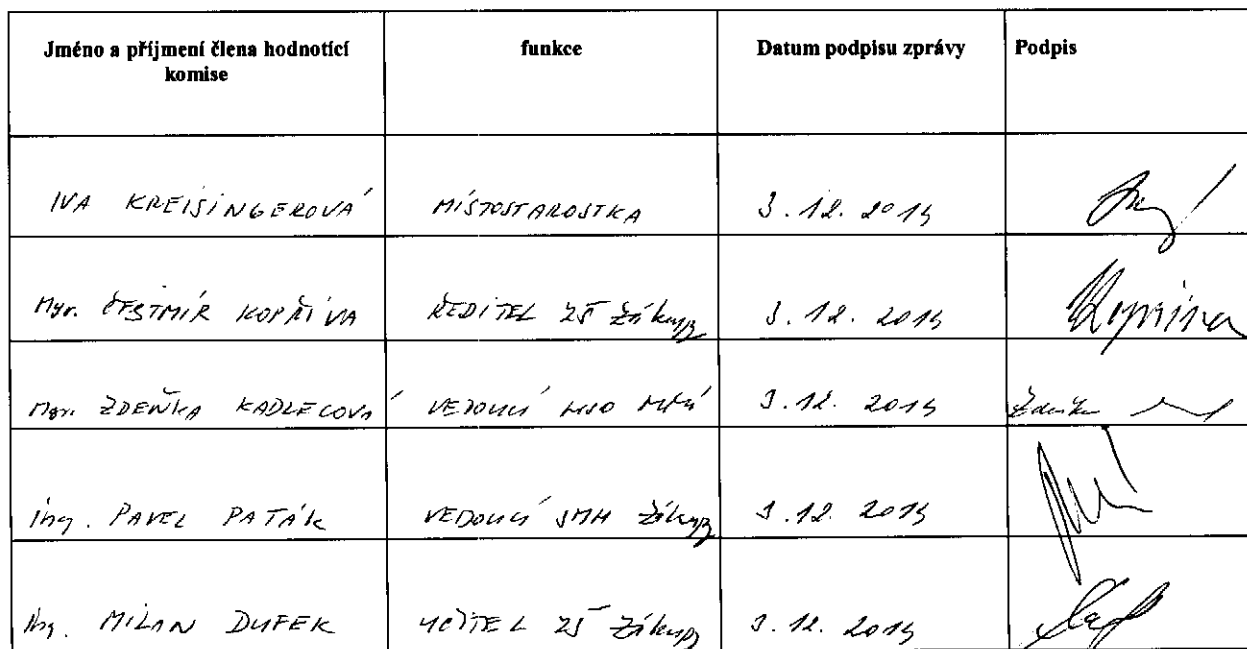 Jméno a příjmení člena hodnotící
komise
funkce
Datum podpisu zprávy
Podpis
IVA KREISINGEROVÁ MÍSTOSTAROSTKA 3. 12. 2014
Mgr. ČESTMÍR KOPŘIVA ŘEDITEL ZŠ Zákupy 3. 12. 2014 Kopřiva
Mgr. ZDEŇKA KADLECOVÁ VEDOUCÍ 3. 12. 2014 Zdeňka
Ing. PAVEL PATÁK VEDOUCÍ SMH Zákupy 3. 12. 2014
Ing. MILAN DUFEK UČITEL ZŠ Zákupy 3. 12. 2014